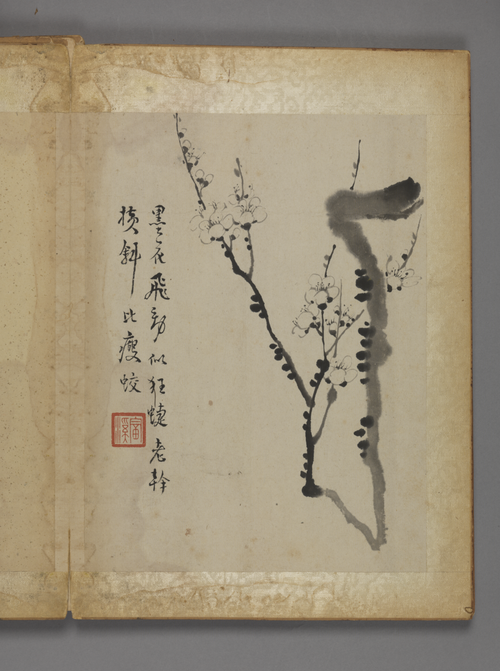 墨花飛動似狂蜨老幹
橫斜比瘦蛟